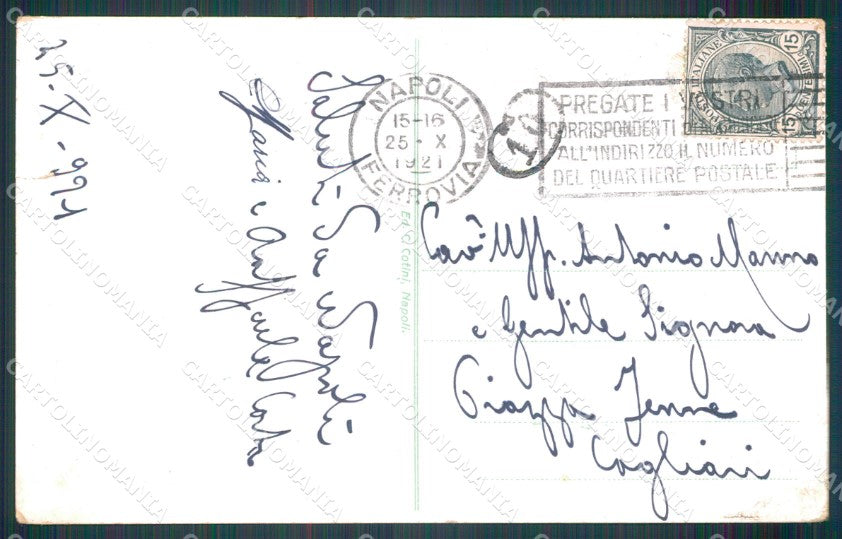 25-X-921
Saluti da Napoli
Maria e Raffaele Costa
Ed. C. Cotini, Napoli.
NAPOLI
15-16
25 · X
1921
FERROVIA
10
PREGATE I VOSTRI
CORRISPONDENTI DI
ALL'INDIRIZZO IL NUMERO
DEL QUARTIERE POSTALE
POSTE ITALIANE
15 CENTESIMI 15
Cav. Uff. Antonio Manno
e Gentile Signora
Piazza Jenne
Cagliari
CARTOLINOMANIA